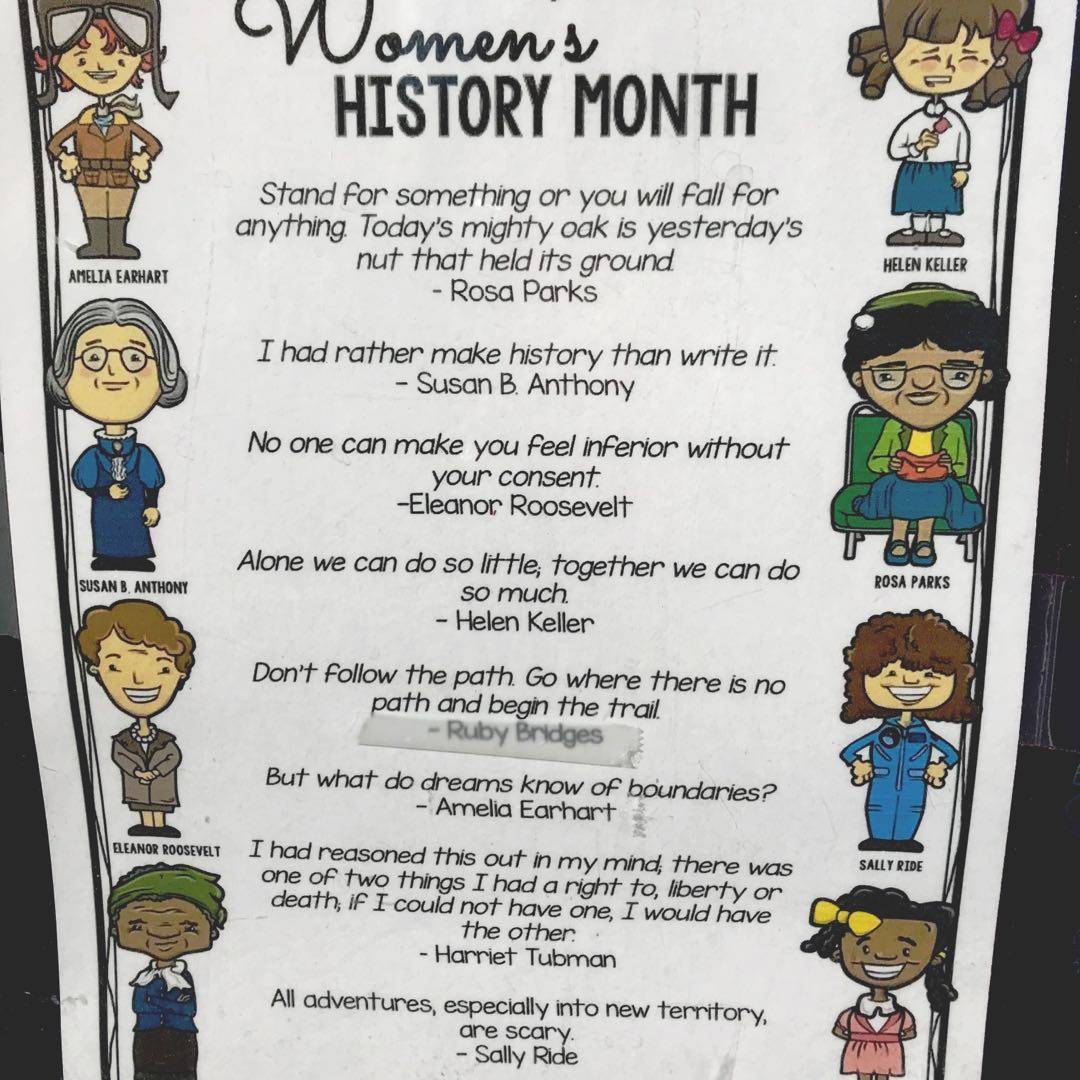 Women's
HISTORY MONTH
Stand for something or you will fall for
anything. Today's mighty oak is yesterday's
nut that held its ground.
- Rosa Parks
I had rather make history than write it.
- Susan B. Anthony
No one can make you feel inferior without
your consent.
-Eleanor Roosevelt
Alone we can do so little; together we can do
so much.
- Helen Keller
Don't follow the path. Go where there is no
path and begin the trail.
- Ruby Bridges
But what do dreams know of boundaries?
- Amelia Earhart
I had reasoned this out in my mind; there was
one of two things I had a right to, liberty or
death; if I could not have one, I would have
the other.
- Harriet Tubman
All adventures, especially into new territory,
are scary.
- Sally Ride
AMELIA EARHART
SUSAN B. ANTHONY
ELEANOR ROOSEVELT
HELEN KELLER
ROSA PARKS
SALLY RIDE